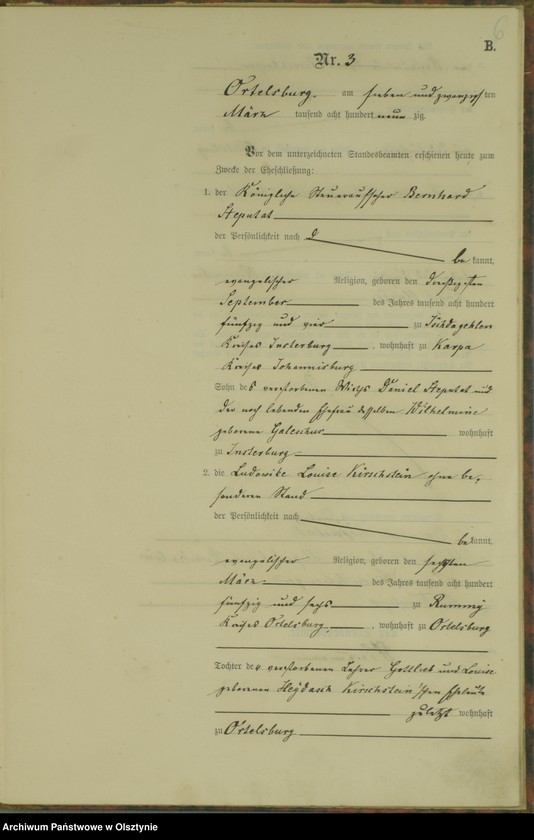 6
B.
Nr. 3
Ortelsburg. am sieben und zwanzigsten
März tausend acht hundert neun zig.
Vor dem unterzeichneten Standesbeamten erschienen heute zum
Zwecke der Eheschließung:
1. der Königliche Steueraufseher Bernhard
Steputat
der Persönlichkeit nach
be kannt,
evangelischer Religion, geboren den dreißigsten
September des Jahres tausend acht hundert
fünfzig und vier zu
Kreises Insterburg, wohnhaft zu Karpa
Kreises Johannisburg
Sohn des verstorbenen Wirths Daniel Steputat und
der noch lebenden Ehefrau desselben Wilhelmine
geborene wohnhaft
zu Insterburg
2. die Ludowike Louise Kirschstein ohne be-
sonderen Stand
der Persönlichkeit nach
be kannt,
evangelischer Religion, geboren den sechsten
März des Jahres tausend acht hundert
fünfzig und sechs zu Rummy
Kreises Ortelsburg, wohnhaft zu Ortelsburg
Tochter der verstorbenen Lehrer Gottlieb und Louise
geborenen Heydasch Kirschstein'schen Eheleute
zuletzt wohnhaft
zu Ortelsburg
Archiwum Państwowe w Olsztynie